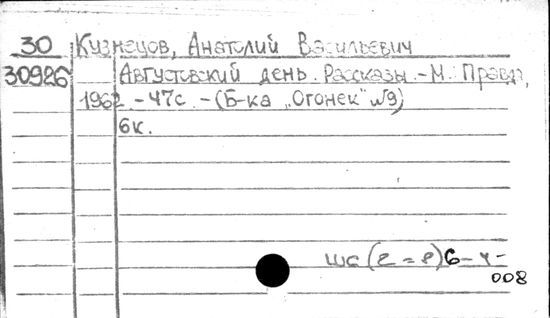 30 Кузнецов, Анатолий Васильевич
30926 Августовский день. Рассказы. - М. Правда,
1962 - 47с. - (Б-ка „Огонек" №9)
6к.
шс (2=8) 6-4-
008